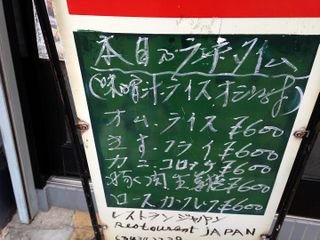 本日のランチタイム
(味噌汁.ライス.オシンコ付)
オム.ライス ¥600
カキ.フライ ¥600
カニ.コロッケ ¥600
豚肉生姜焼 ¥600
ロースカツ ¥600
レストランジャパン
Restaurent JAPAN